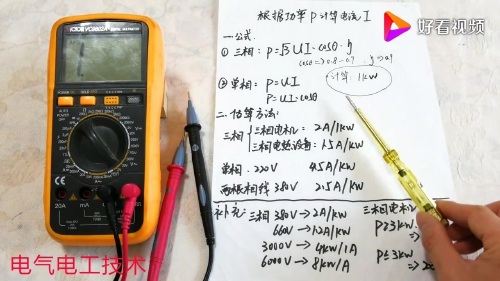 VICTOR VC9802A+
根据功率P计算电流I
好看视频
一.公式:
①三相: P=√3UI·cosθ·η
cosθ=>0.8-0.9
②单相: P=UI
计算 1kW
P=UI·cosθ
二.估算方法:
三相
三相电机: 2A/1kW
三相电热设备: 1.5A/1kW
单相. 220V 4.5A/kW
两根相线 380V 2.5A/kW
补充: 三相 380V→2A/kW
660V→1.2A/kW
3000V→4kW/1A
6000V→8kW/A
三相电机
P≥3kW
P≤3kW
20A
电气电工技术